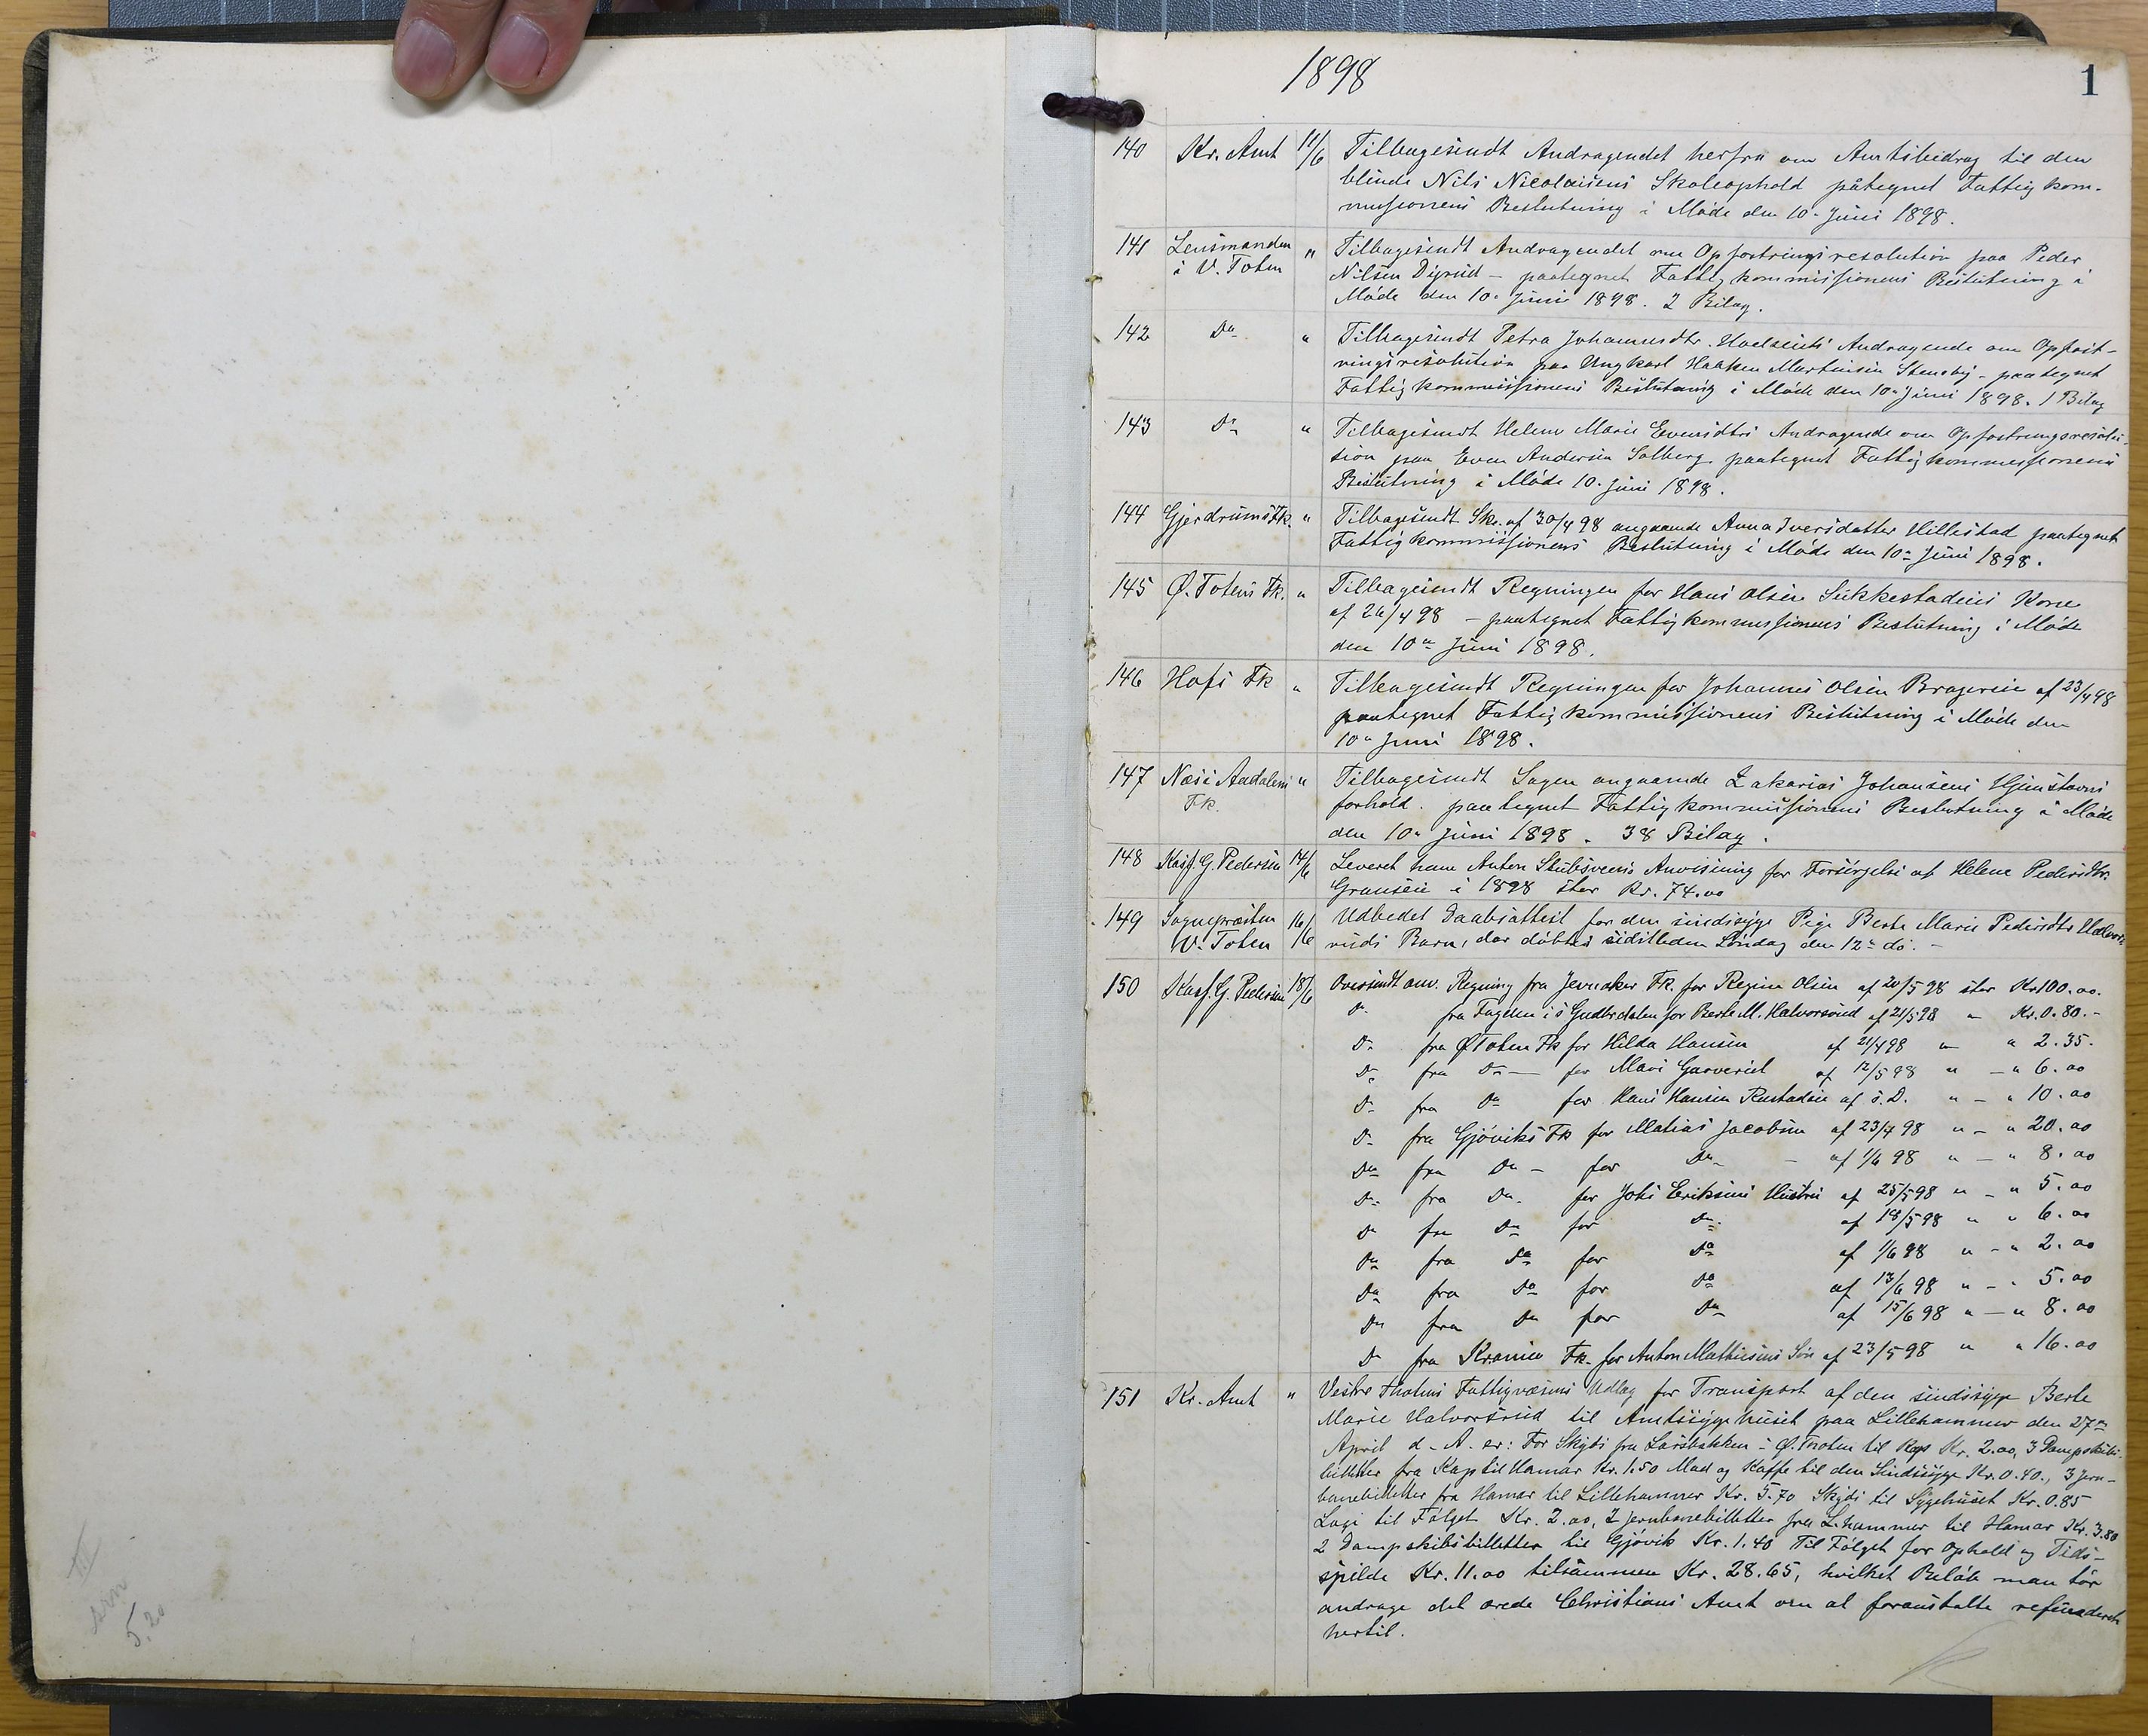 1898
1
140 Kr. Amt 11/6 Tilbagesendt Andragendet herfra om Amtsbidrag til den
blinde Nils Nicolaisens Skoleophold påtegnet Fattigkom-
missionens Beslutning i Møde den 10- Juni 1898.
141 Lensmanden i V. Toten " Tilbagesendt Andragendet om Opfostringsresolution paa Peder
Nilsen Digrud - paategnet Fattigkommissionens Beslutning i
Møde den 10- Juni 1898. 2 Bilag.
142 Do " Tilbagesendt Petra Johannesdtr. Andragende om Opfost-
ringsresolution paa Ungkarl Haaken Martinsen Steneby - paategnet
Fattigkommissionens Beslutning i Møde den 10- Juni 1898. 1 Bilag
143 Do " Tilbagesendt Helene Marie Evensdtrs Andragende om Opfostringsresolu-
tion paa Even Andersen Solberg. paategnet Fattigkommissionens
Beslutning i Møde 10. Juni 1898.
144 Gjerdrums Fk. " Tilbagesendt Skr. af 30/4 98 angaaende Anna Iversdatter Hillestad paategnet
Fattigkommissionens Beslutning i Møde den 10- Juni 1898.
145 Ø. Totens Fk. " Tilbagesendt Regningen for Hans Olsen Sukkestadeies Kone
af 26/4 98 - paategnet Fattigkommissionens Beslutning i Møde
den 10de Juni 1898.
146 Hofs Fk " Tilbagesendt Regningen for Johannes Olsen Bragereie af 23/4 98
paategnet Fattigkommissionens Beslutning i Møde den
10- Juni 1898.
147 Næs i Aadalens Fk. " Tilbagesendt Sagen angaaende Zakarias Johansens Hjemstavns
forhold. paategnet Fattigkommissionens Beslutning i Møde
den 10- Juni 1898. 38 Bilag.
148 Kass. G. Pedersen 14/6 Leveret ham Anton Stubsveens Anvisning for Forsørgelse af Helene Pedersdtr.
Granseie i 1898 stor Kr. 74.00
149 Sognepræsten V. Toten 16/6 Udbedet Daabsattest for den sindssyge Pige Berte Marie Pedersdtr Halvors-
ruds Barn, der døbtes sidstleden Søndag den 12- ds. -
150 Kass. G. Pedersen 18/6 Oversendt anv. Regning fra Jevnaker Fk. for Regine Olsen af 20/5 98 stor Kr. 100.00.
Do fra Fogden i s Gudbrdalen for Berte M. Halvorsrud af 21/5 98 - Kr. 0.80.-
Do fra Ø Toten Fk for Hilda Hansen af 21/4 98 - " 2.35.
Do fra Do - for Mari Garverud af 12/5 98 " - " 6.00
Do fra Do for Hans Hansen Rustadeie af s.D. " - " 10.00
Do fra Gjøviks Fk for Matias Jacobsen af 23/4 98 " - " 20.00
Do fra Do - for Do - af 1/6 98 " - " 8.00
Do fra Do. for Johs Eriksens Hustru af 25/5 98 " - " 5.00
Do fra Do for Do. af 18/5 98 " " 6.00
Do fra Do for Do af 1/6 98 " - " 2.00
Do fra Do for Do af 13/6 98 " - " 5.00
Do fra Do for Do af 15/6 98 " - " 8.00
Do fra Fk. for Anton Mathiesens Søn af 23/5 98 " " 16.00
151 Kr. Amt " Vestre Thotens Fattigvæsens Udlæg for Transport af den sindssyge Berte
Marie Halvorsrud til Amtssygehuset paa Lillehammer den 27de
April d. A. er: For Skyds fra Larsbakken i Ø. Thoten til Kap Kr. 2.00, 3 Dampskibs-
billetter fra Kap til Hamar Kr. 1.50 Mad og Kaffe til den Sindssyge Kr. 0.40., 3 Jern-
banebilletter fra Hamar til Lillehammer Kr. 5.70 Skyds til Sygehuset Kr. 0.85
Logi til Følget Kr. 2.00, 2 jernbanebilletter fra L.hammer til Hamar Kr. 3.80
2 Dampskibsbilletter til Gjøvik Kr. 1.40 Til Følget for Ophold og Tids-
spilde Kr. 11.00 tilsammen Kr. 28.65, hvilket Beløb man tør
andrage det ærede Christians Amt om at foranstalte refunderet
hertil.
5.20